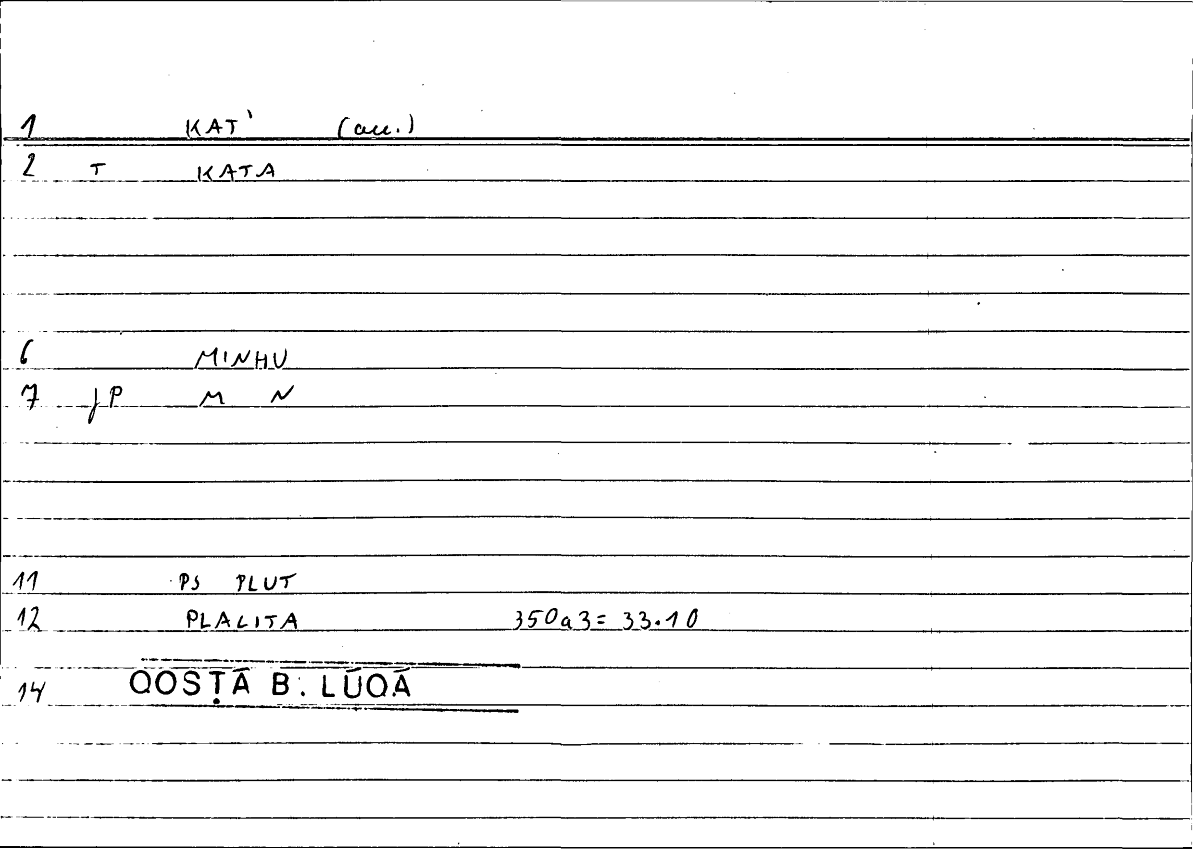 1 KAT' (acc.)
2 T KATA
6 MINHU
7 JP M N
11 PS PLUT
12 PLACITA 350a3= 33.10
14 QOSṬĀ B. LŪQĀ